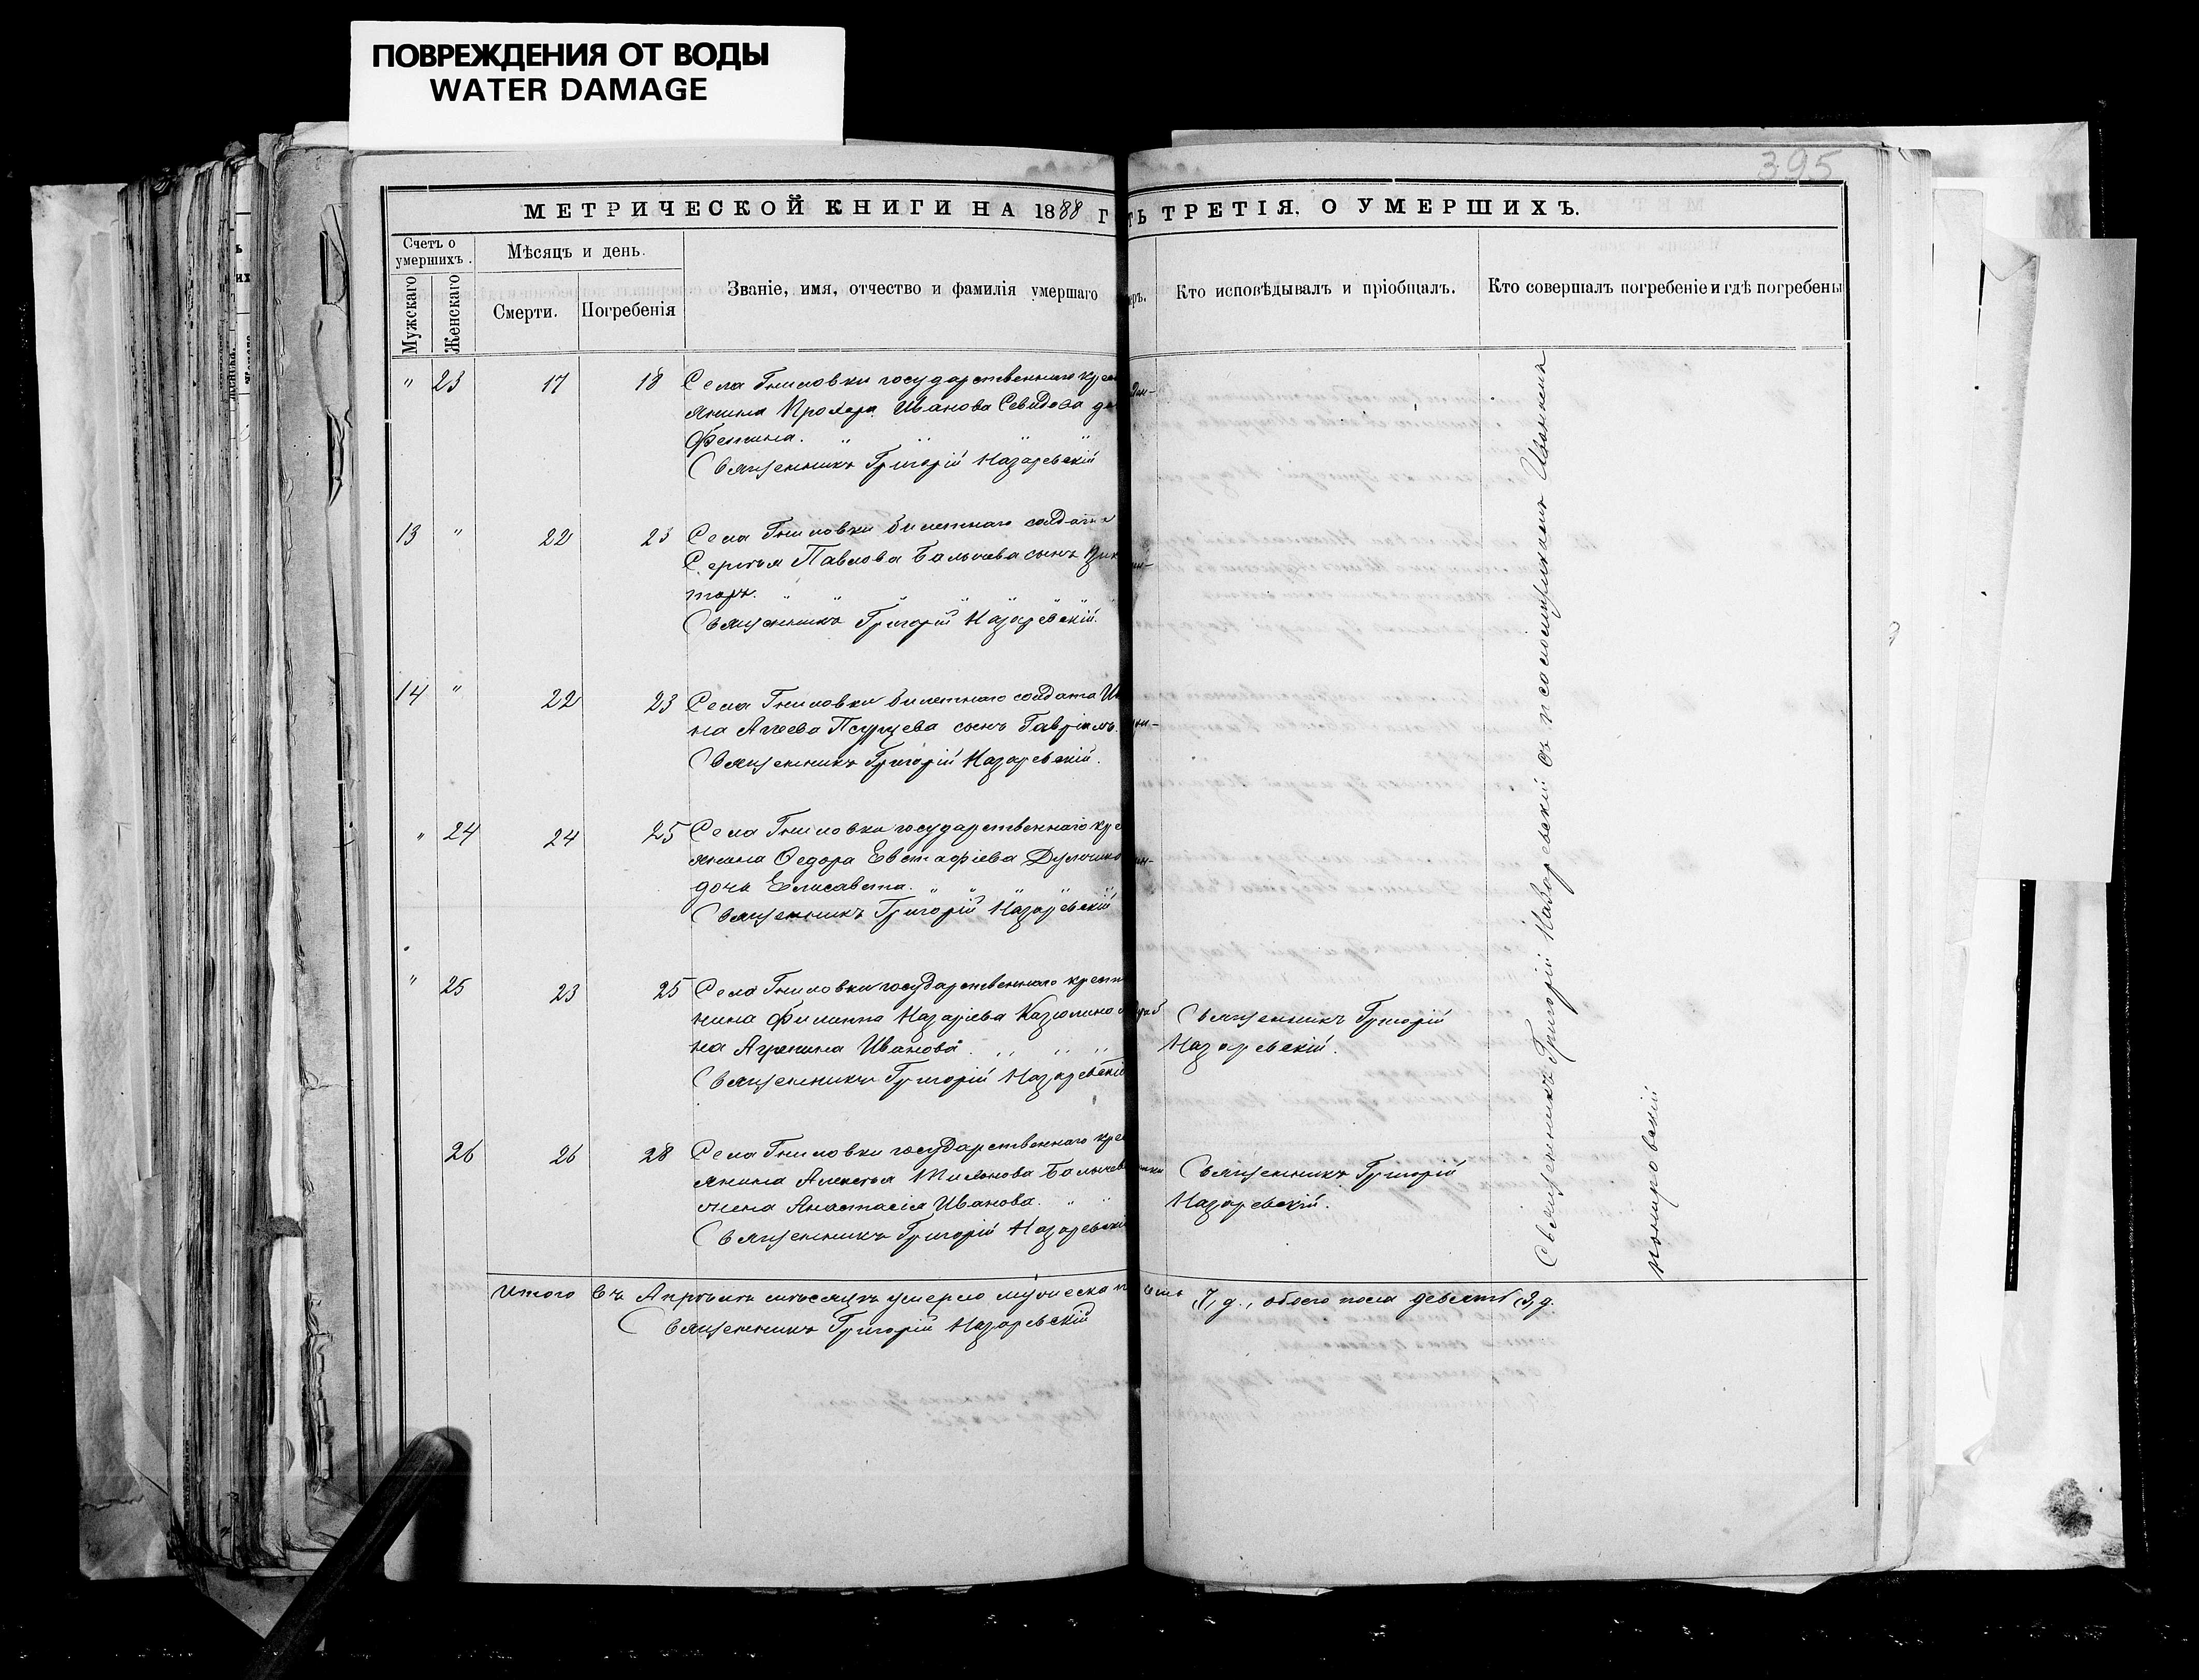 ПОВРЕЖДЕНИЯ ОТ ВОДЫ
WATER DAMAGE
395
МЕТРИЧЕСКОЙ КНИГИ НА 1888 Г
ТЬ ТРЕТІЯ, О УМЕРШИХЪ.
Счетъ о умершихъ.
Мѣсяцъ и день.
Мужскаго
Женскаго
Смерти.
Погребенія
Званіе, имя, отчество и фамилія умершаго
Кто исповѣдывалъ и пріобщалъ.
Кто совершалъ погребеніе и гдѣ погребены
" 23 17 18 Села Гниловки государственнаго крес
янина Прохора Иванова Севидова до
Фетиніа. " " " "
Священникъ Григорій Назаревскій
13 " 22 23 Села Гниловки билетнаго солдата
Сергѣя Павлова Балычева сынъ Вик
торъ. " " " "
Священникъ Григорій Назаревскій.
14 " 22 23 Села Гниловки билетнаго солдата Ив
на Агѣева Псурцева сынъ Гавріилъ.
Священникъ Григорій Назаревскій.
" 24 24 25 Села Гниловки государственнаго кре
янина Ѳедора Евстафіева
дочь Елисавета. " " " "
Священникъ Григорій Назаревскій
" 25 23 25 Села Гниловки государственнаго крестя
нина Филиппа Назаріева
на Агрепина Иванова. " " "
Священникъ Григорій Назаревскій
Священникъ Григорій
Назаревскій.
26 26 28 Села Гниловки государственнаго кре
янина Алексѣя Балычев
жена Анастасія Иванова. " "
Священникъ Григорій Назаревскій
Священникъ Григорій
Назаревскій.
Священникъ Григорій Назаревскій съ псаломщикомъ Иваннкія
Итого въ Апрѣлѣ мѣсяцѣ умерло мужеска п
7, д., обоего пола девять (9, д.
Священникъ Григорій Назаревскій